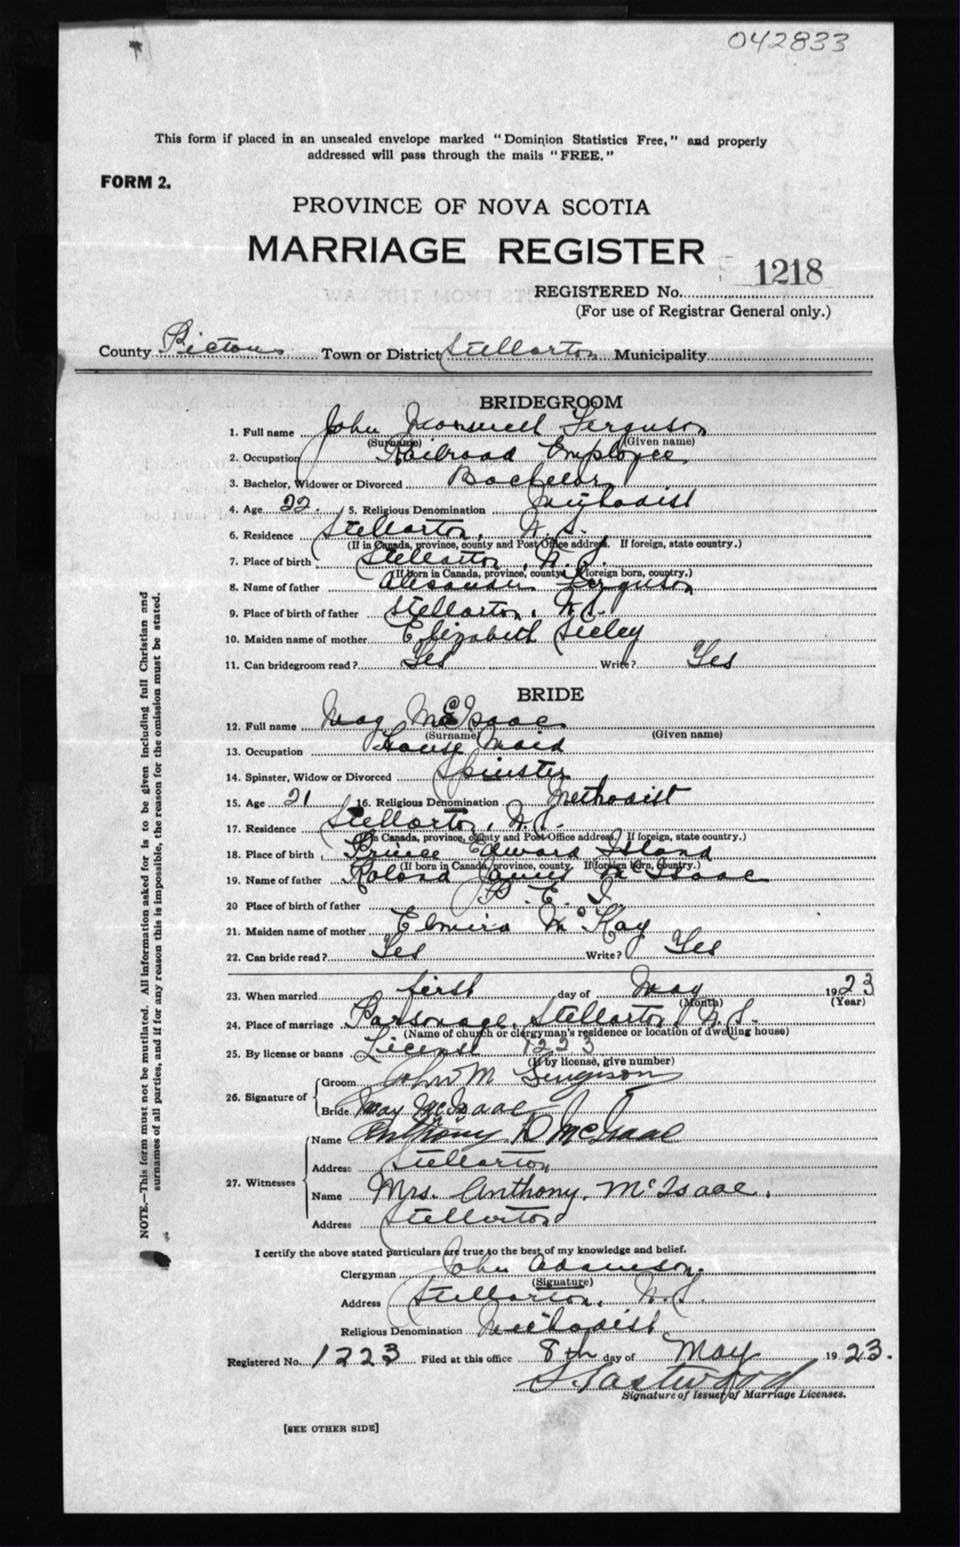 042833
This form if placed in an unsealed envelope marked "Dominion Statistics Free," and properly
addressed will pass through the mails "FREE."
FORM 2.
PROVINCE OF NOVA SCOTIA
MARRIAGE REGISTER
1218
REGISTERED No.
(For use of Registrar General only.)
County Pictou Town or District Stellarton Municipality
BRIDEGROOM
1. Full name John Ferguson
(Surname) (Given name)
2. Occupation Railroad Employee
3. Bachelor, Widower or Divorced Bachelor
4. Age 22. 5. Religious Denomination Methodist
6. Residence Stellarton, N.S.
(If in Canada, province, county and Post Office address. If foreign, state country.)
7. Place of birth Stellarton, N.S.
(If born in Canada, province, county. If foreign born, country.)
8. Name of father Alexander Ferguson
9. Place of birth of father Stellarton, N.S.
10. Maiden name of mother Elizabeth Seeley
11. Can bridegroom read? Yes Write? Yes
BRIDE
12. Full name May McIsaac
(Surname) (Given name)
13. Occupation House Maid
14. Spinster, Widow or Divorced Spinster
15. Age 21 16. Religious Denomination Methodist
17. Residence Stellarton, N.S.
(If in Canada, province, county and Post Office address. If foreign, state country.)
18. Place of birth Prince Edward Island
(If born in Canada, province, county. If foreign born, country.)
19. Name of father Roland James McIsaac
20 Place of birth of father P. E. I.
21. Maiden name of mother Elmira McKay
22. Can bride read? Yes Write? Yes
23. When married first day of May 1923
(Month) (Year)
24. Place of marriage Parsonage, Stellarton, N.S.
(Name of church or clergyman's residence or location of dwelling house)
25. By license or banns License 1223
(If by license, give number)
26. Signature of
Groom John M Ferguson
Bride May McIsaac
27. Witnesses
Name Anthony D McIsaac
Address Stellarton
Name Mrs. Anthony McIsaac.
Address Stellarton
I certify the above stated particulars are true to the best of my knowledge and belief.
Clergyman John Adamson.
(Signature)
Address Stellarton, N.S.
Religious Denomination Methodist
Registered No. 1223 Filed at this office 8th day of May 1923.
S Eastwood
Signature of Issuer of Marriage Licenses.
[SEE OTHER SIDE]
NOTE.—This form must not be mutilated. All information asked for is to be given including full Christian and
surnames of all parties, and if for any reason this is impossible, the reason for the omission must be stated.